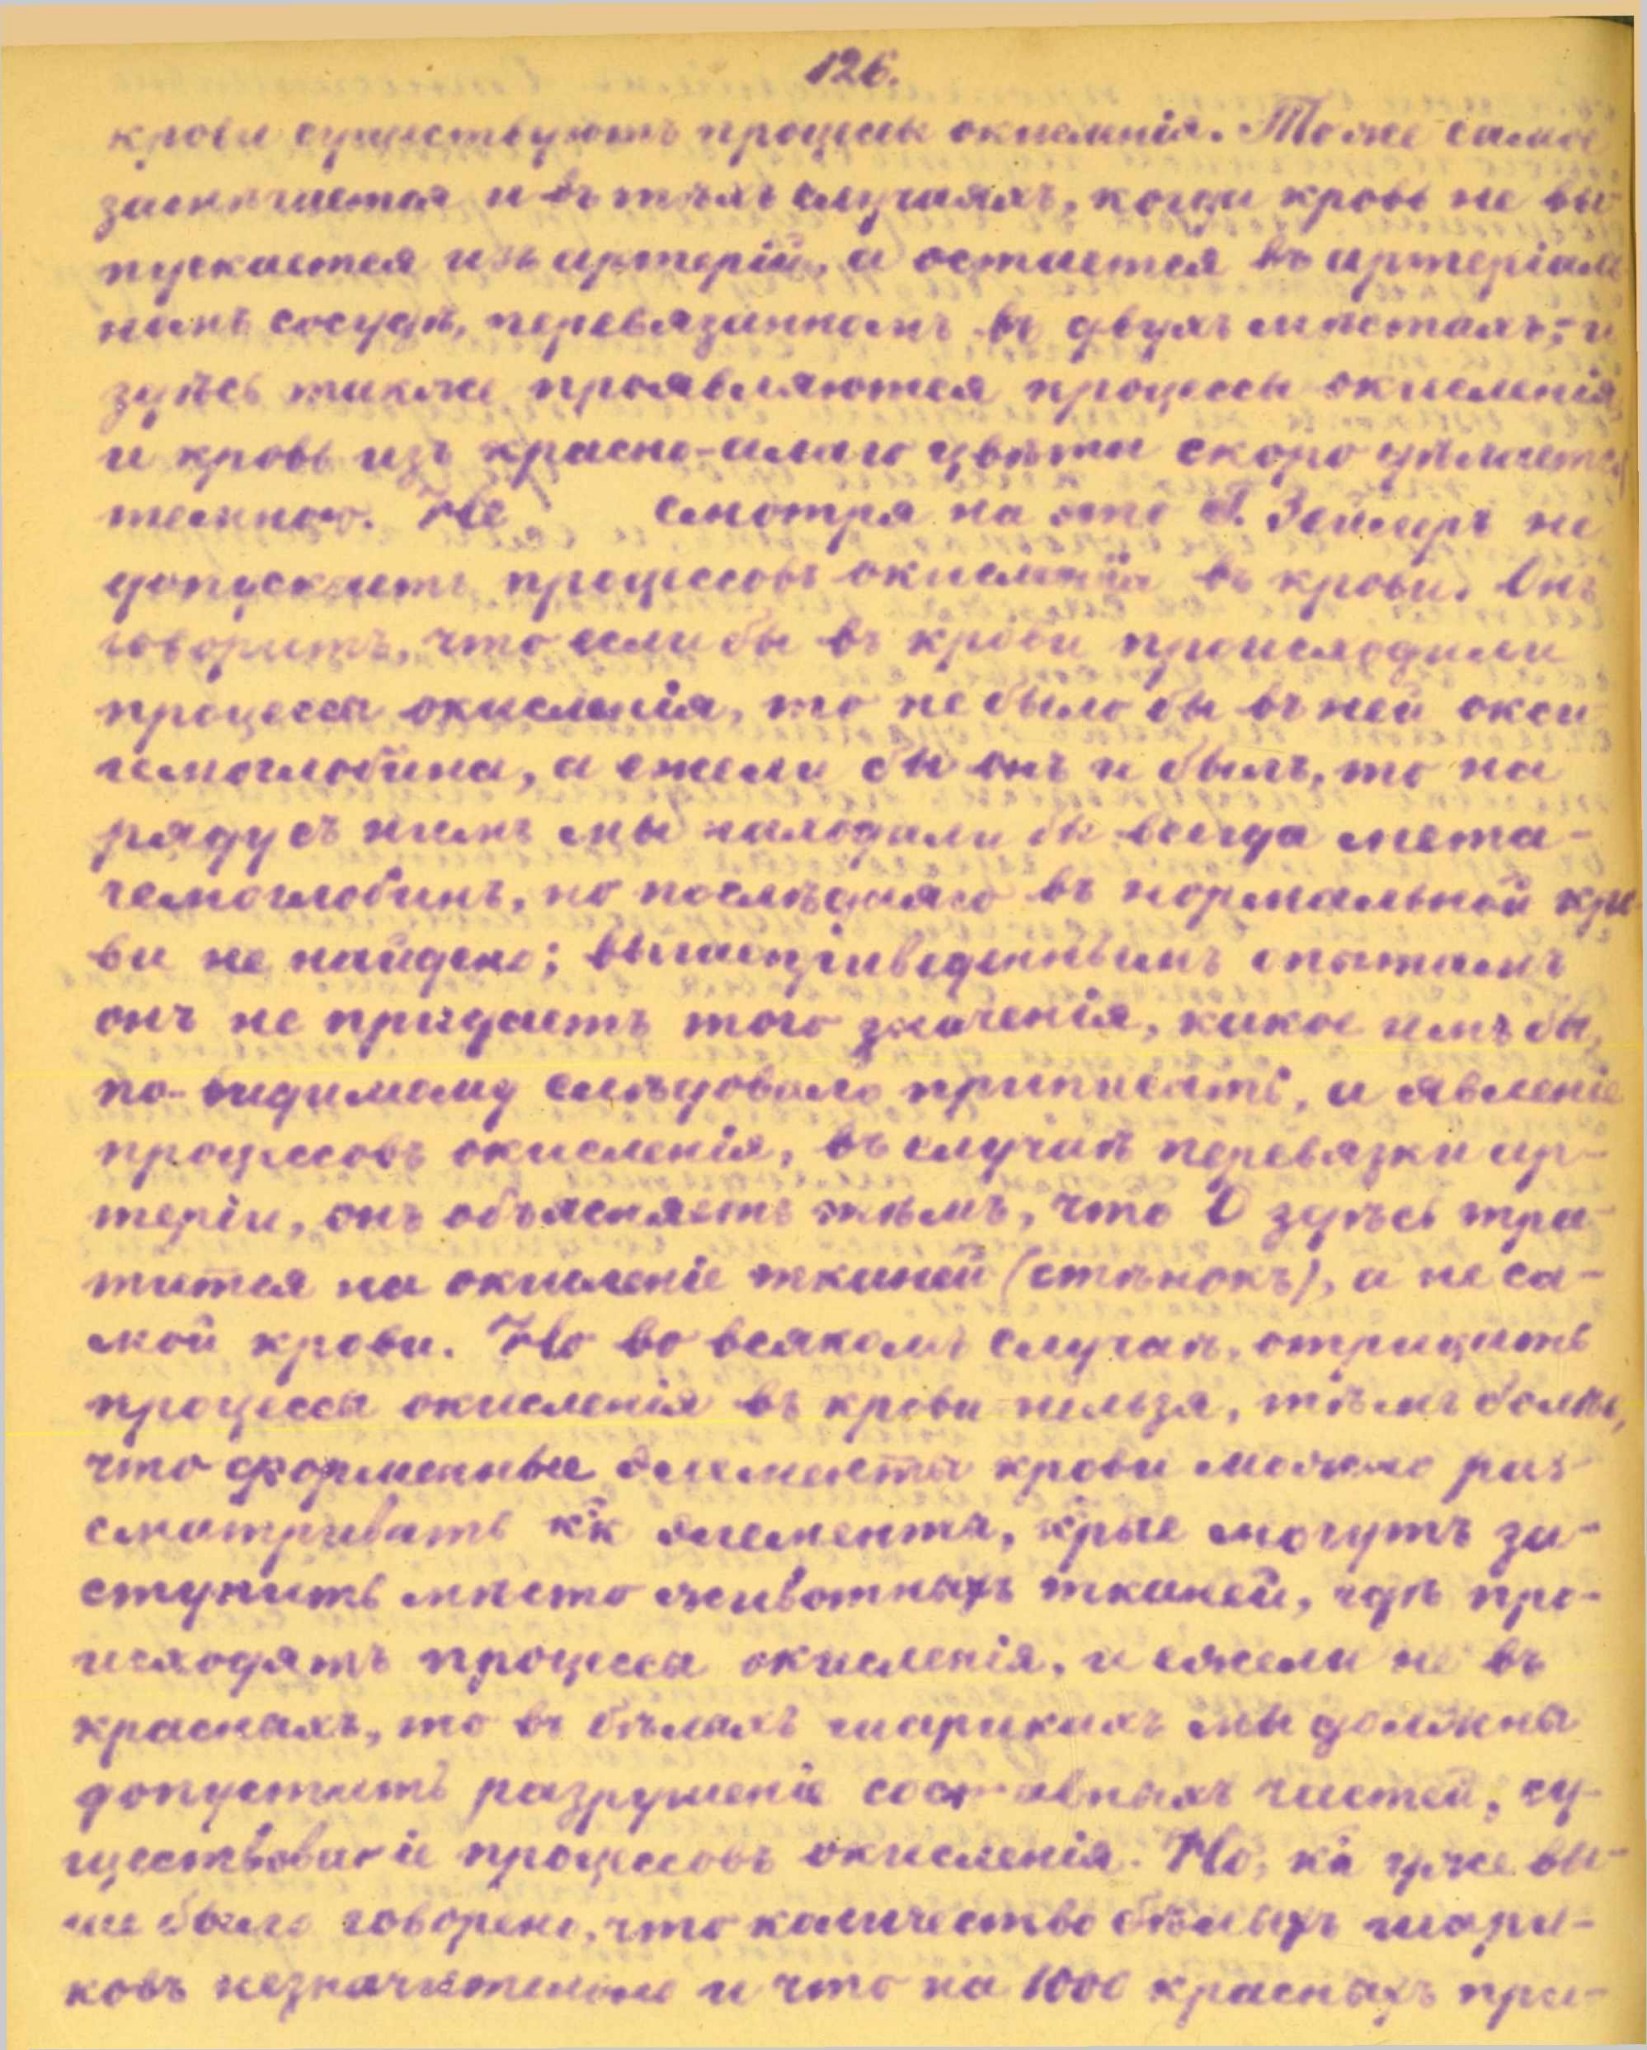 126.
крови существуютъ процессы окисленія. Тоже самое
замѣчается и въ тѣхъ случаяхъ, когда кровь не вы-
пускается изъ артерій, а остается въ артеріаль
номъ сосудѣ, перевязанномъ въ двухъ мѣстахъ; – и
здѣсь также проявляются процессы окисленія,
и кровь изъ красно-алаго цвѣта скоро дѣлается
темною. Не смотря на это Г. Зейлеръ не
допускаетъ процессовъ окисленія въ крови. Онъ
говоритъ, что если бы въ крови происходили
процессы окисленія, то не было бы въ ней окси-
гемоглобина, а ежели бы онъ и былъ, то на
ряду съ нимъ мы находили бы всегда мета-
гемоглобинъ, но послѣдняго въ нормальной кро-
ви не найдено; вышеприведеннымъ опытамъ
онъ не придаетъ того значенія, какое имъ бы,
по-видимому слѣдовало приписать, а явленіе
процессовъ окисленія, въ случаѣ перевязки ар-
теріи, онъ объясняетъ тѣмъ, что О здѣсь тра-
тится на окисленіе тканей (стѣнокъ), а не са-
мой крови. Но во всякомъ случаѣ, отрицать
процессы окисленія въ крови нельзя, тѣмъ болѣе,
что форменные элементы крови можно раз-
сматривать к'к элементы, к'рые могутъ за-
ступить мѣсто животныхъ тканей, гдѣ про-
исходятъ процессы окисленія, и ежели не въ
красныхъ, то въ бѣлыхъ шарикахъ мы должны
допустить разрушеніе составныхъ частей, су-
ществованіе процессовъ окисленія. Но, к'к уже вы-
ше было говорено, что количество бѣлыхъ шари-
ковъ незначительно и что на 1000 красныхъ при-